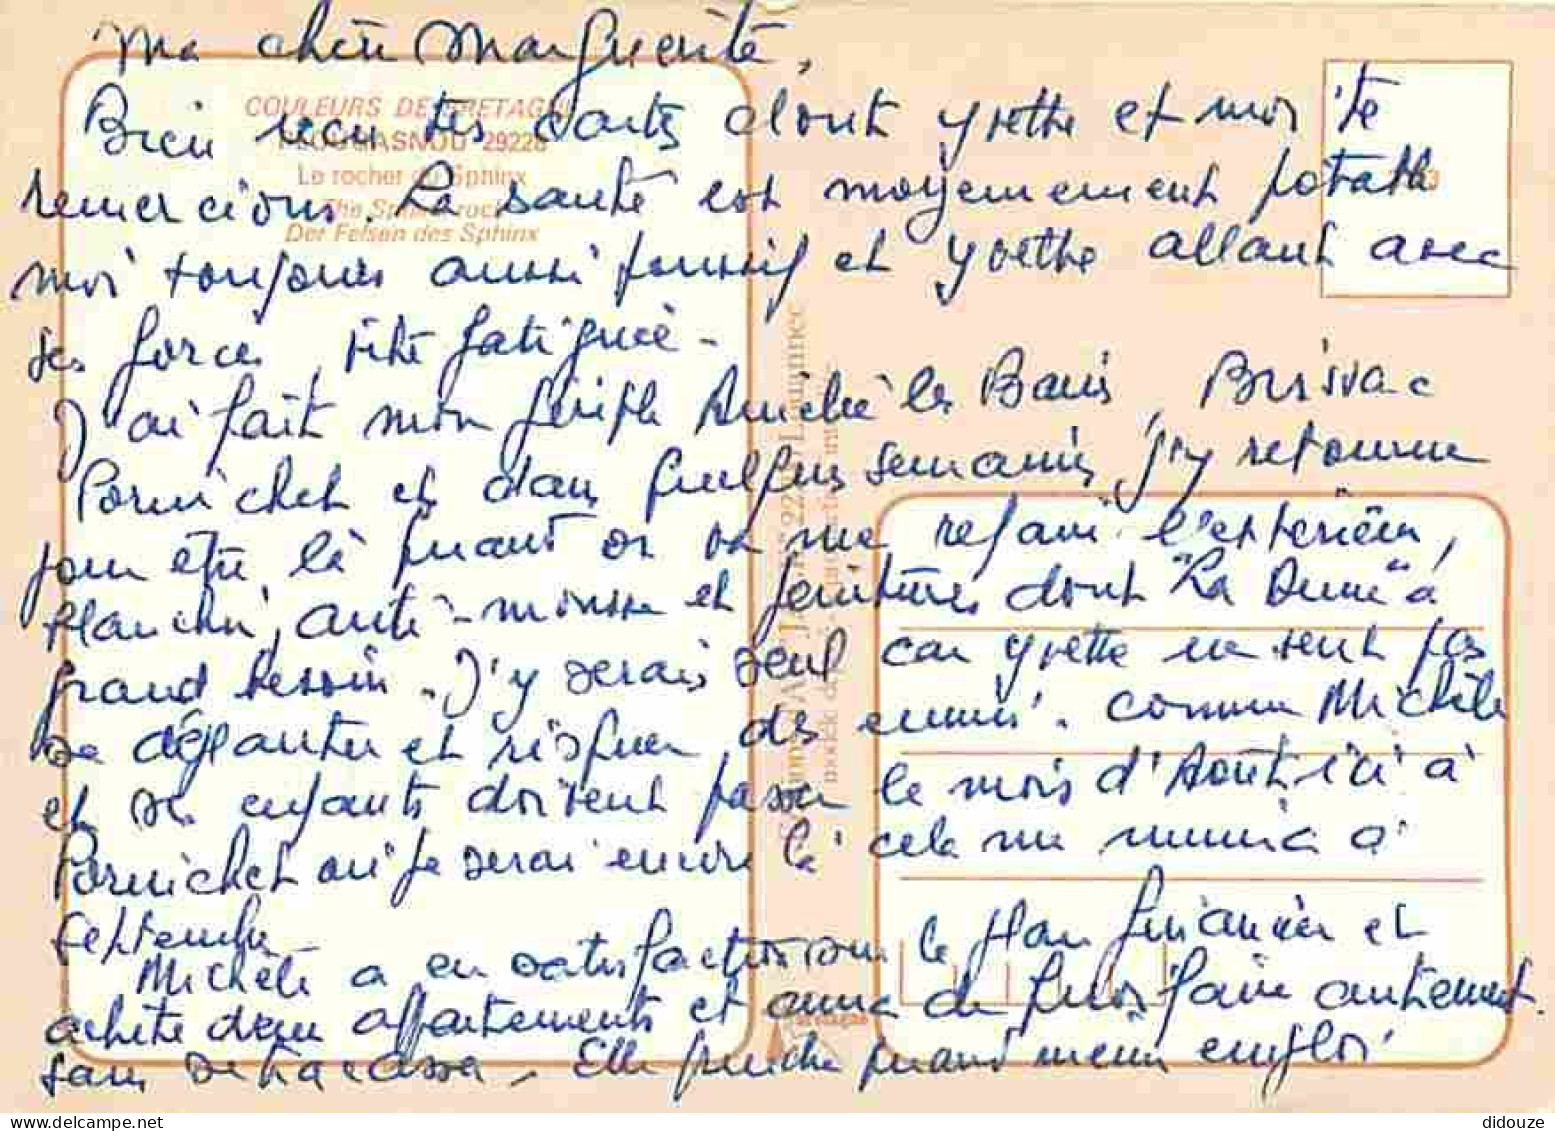 Ma chère Marguerite,
Bien reçu tes cartes dont Yvette et moi te
remercions. La santé est moyennement potable
moi toujours aussi poussif et Yvette allant avec
ses forces, vite fatiguée -
J'ai fait mon périple les Bains, Brissac
Pornichet et dans quelques semaines, j'y retourne
pour être là quand on va me refaire l'extérieur,
planches, anti-mousse et peintures dont "La Dune" a
grand besoin. J'y serais seul car Yvette ne sent pas
se déplanter et risquer des ennuis. comme Michèle
et ses enfants doivent passer le mois d'Août ici à
Pornichet où je serai encore là cela me mènera à
Septembre
Michèle a eu satisfaction sur le plan financier et
achète deux appartements et aura de quoi faire autrement
sans se tracasser. Elle cherche quand même emploi
COULEURS DE BRETAGNE
PLOUGASNOU 29228
Le rocher du Sphinx
The Sphinx rock
Der Felsen des Sphinx
22 Louannec
didouze